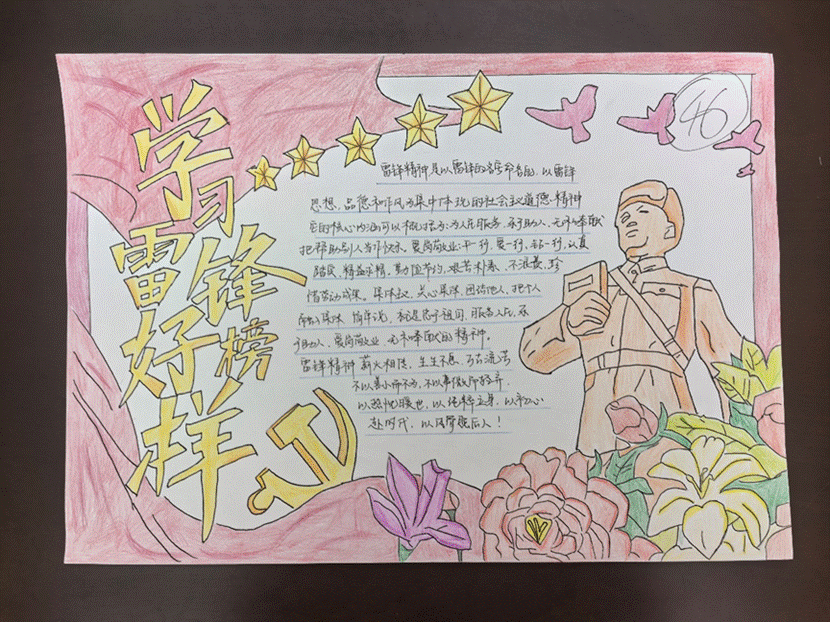 学习雷锋好榜样
46
雷锋精神是以雷锋的名字命名的,以雷锋
思想、品德和作风为集中体现的社会主义道德精神
它的核心内涵可以概括为:为人民服务,乐于助人,无私奉献
把帮助别人当作快乐,爱岗敬业:干一行,爱一行,钻一行,认真
踏实,精益求精,勤俭节约,艰苦朴素,不浪费,珍
惜劳动成果。集体主义,关心集体,团结他人,把个人
融入集体 简单说,就是忠于祖国,服务人民,乐
于助人,爱岗敬业 无私奉献的精神。
雷锋精神 薪火相传,生生不息,万古流芳
不以善小而不为,不以事微而轻弃
以热忱暖世,以纯粹立身,以初心
赴时代,以风骨暖后人!